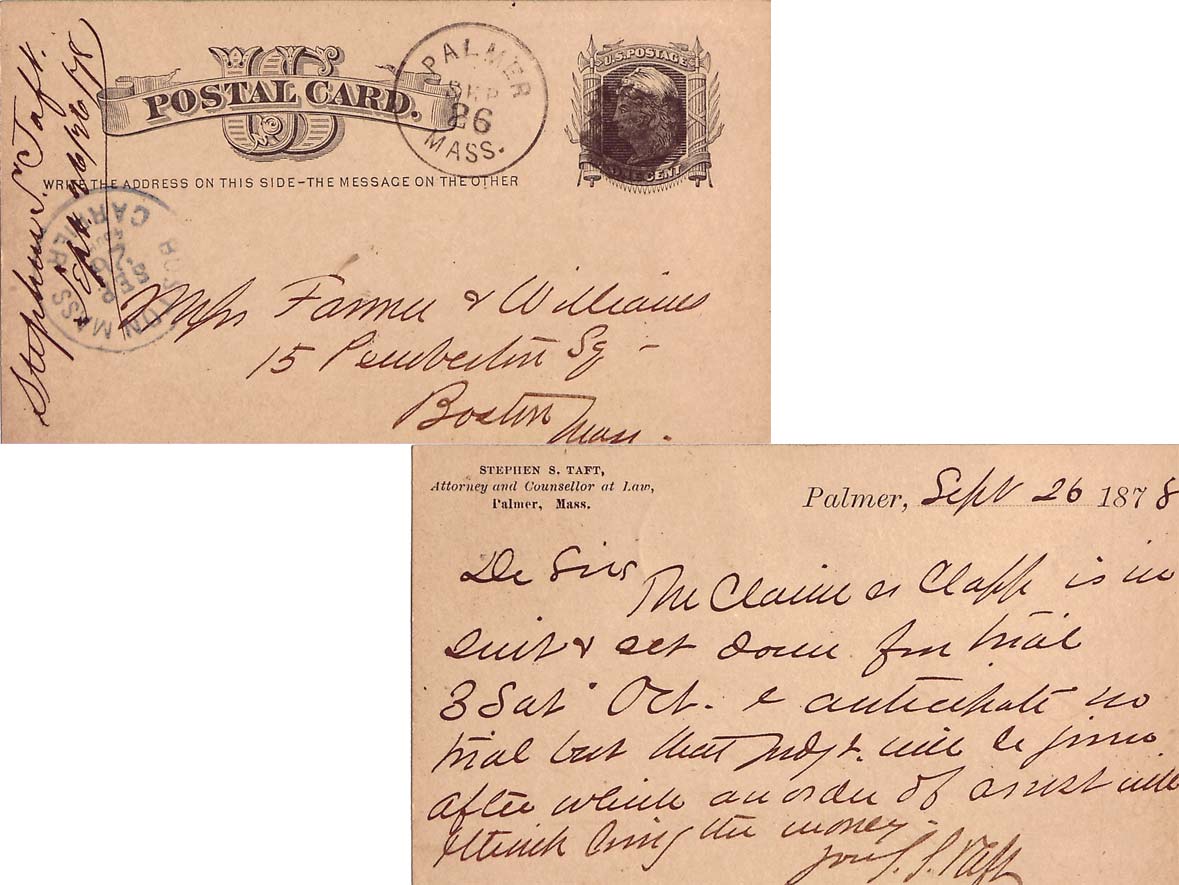 Stephen S. Taft.
Sept. 26/78
US
POSTAL CARD.
WRITE THE ADDRESS ON THIS SIDE–THE MESSAGE ON THE OTHER
PALMER
SEP
26
MASS.
U.S. POSTAGE
ONE CENT
BOSTON MASS
SEP
26
CARRIER
Farmer & Williams
15 Pemberton Sq -
Boston
Mass.
STEPHEN S. TAFT,
Attorney and Counsellor at Law,
Palmer, Mass.
Palmer, Sept 26 1878
De Sirs
The Claim vs Clapp is in
suit & set down for trial
3 Sat Oct. & anticipate no
trial but that Judgt. will be given
after which an order of arrest will
I think bring the money.
Yours S. S. Taft